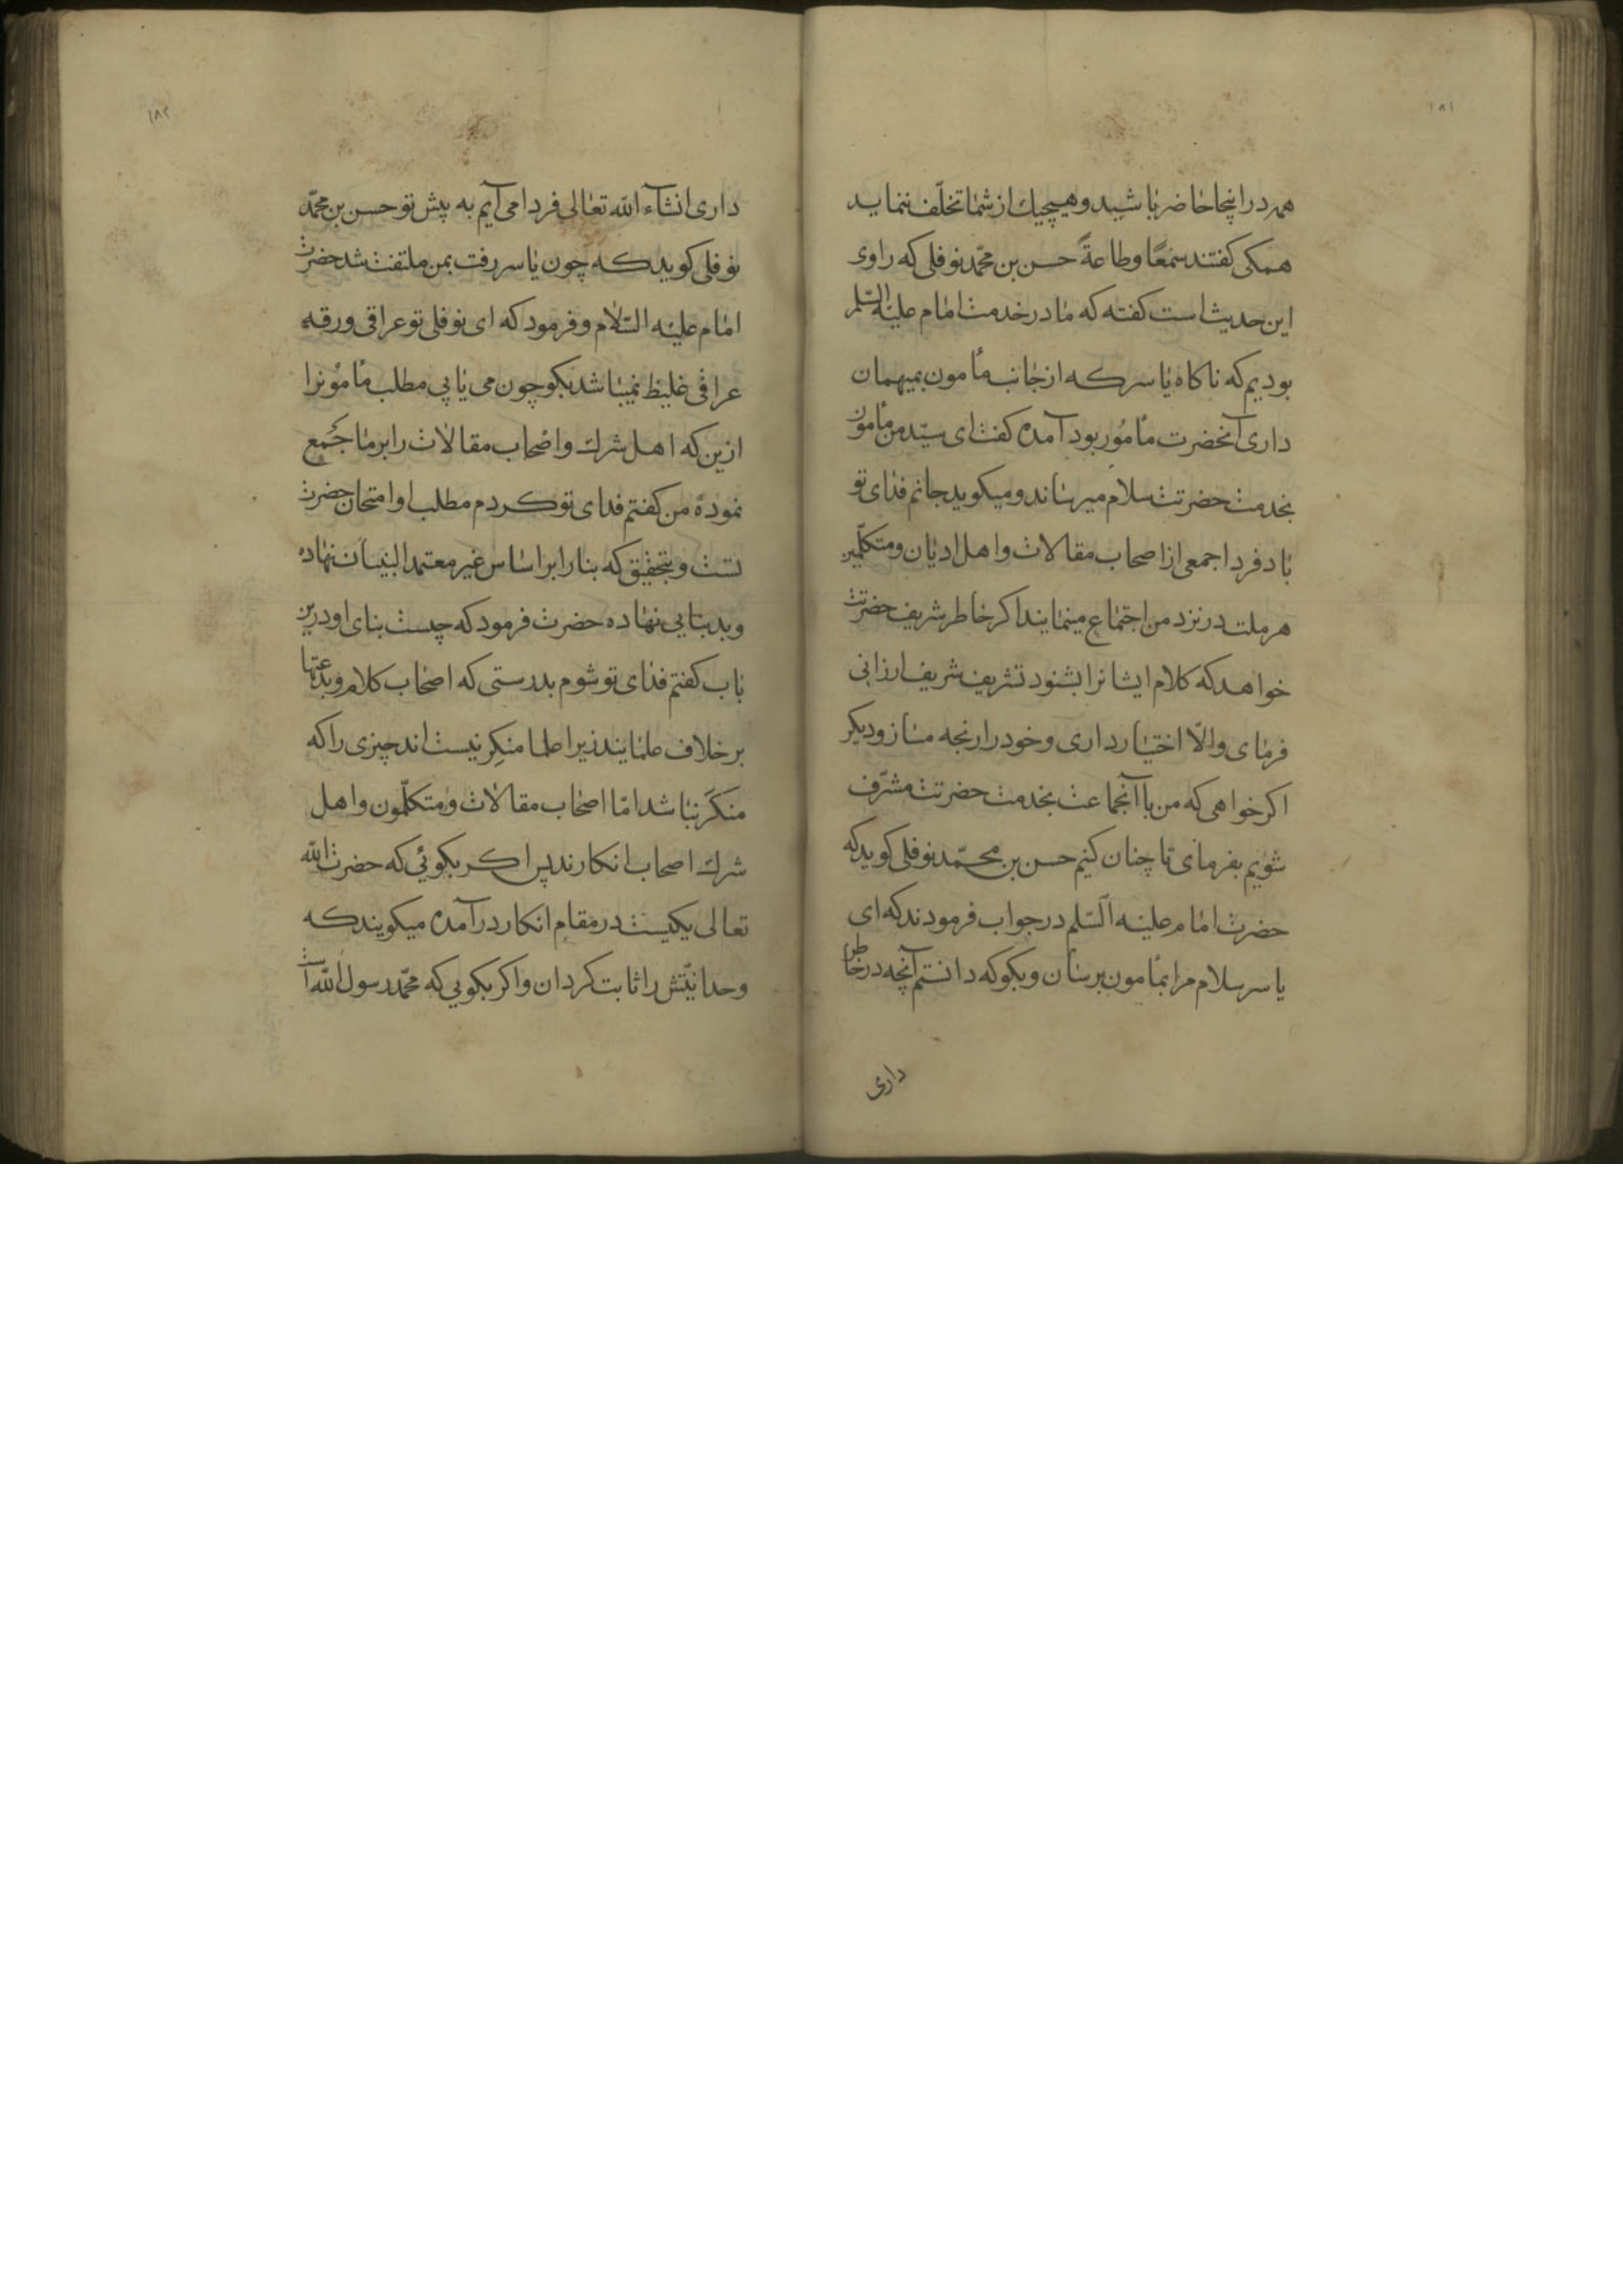 ۱۸۱
همه در اینجا حاضر باشید و هیچیك از شما تخلّف ننماید
همکی کفتند سمعًا و طاعةً حسن بن محمّد نوفلی که راوی
این حدیث است کفته که ما در خدمت امام علیه السّلم
بودیم که ناکاه یاسر که از جانب مأمون بمیهمان
داری آنحضرت مأمور بود آمده کفت ای سیّد من مأمون
بخدمت حضرتت سلام میرساند و میکوید جانم فدای تو
باد فردا جمعی از اصحاب مقالات و اهل ادیان و متکلّمین
هر ملت در نزد من اجتماع مینمایند اکر خاطر شریف حضرتت
خواهد که کلام ایشانرا بشنود تشریف شریف ارزانی
فرمای و الّا اختیار داری و خود را رنجه مساز و دیکر
اکر خواهی که من با آنجماعت بخدمت حضرتت مشرّف
شویم بفرمای تا چنان کنیم حسن بن محمّد نوفلی کوید که
حضرت امام علیه السّلم در جواب فرمودند که ای
یاسر سلام مرا بمأمون برسان و بکو که دانستم آنچه در خاطر
داری
۱۸۲
داری انشاء الله تعالی فردا می آیم به پیش تو حسن بن محمّد
نوفلی کوید که چون یاسر رفت بمن ملتفت شد حضرت
امام علیه السّلام و فرمود که ای نوفلی تو عراقی و رقه
عراقی غلیظ نمیباشد بکو چون می یابی مطلب مأمونرا
ازین که اهل شرك و اصحاب مقالات را بر ما جمع
نموده من کفتم فدای تو کردم مطلب او امتحان حضرت
تست و بتحقیق که بنا را بر اساس غیر معتمد البنیان نهاده
و بد بنایی نهاده حضرت فرمود که چیست بنای او درین
باب کفتم فدای تو شوم بدرستی که اصحاب کلام و بدعتها
بر خلاف علمایند زیرا علما منکِر نیست اند چیزی را که
منکَر نباشد امّا اصحاب مقالات و متکلّمون و اهل
شرك اصحاب انکارند پس اکر بکوئی که حضرت الله
تعالی یکیست در مقام انکار در آمده میکویند که
وحدانیّتش را ثابت کردان و اکر بکویی که محمّد رسول الله است